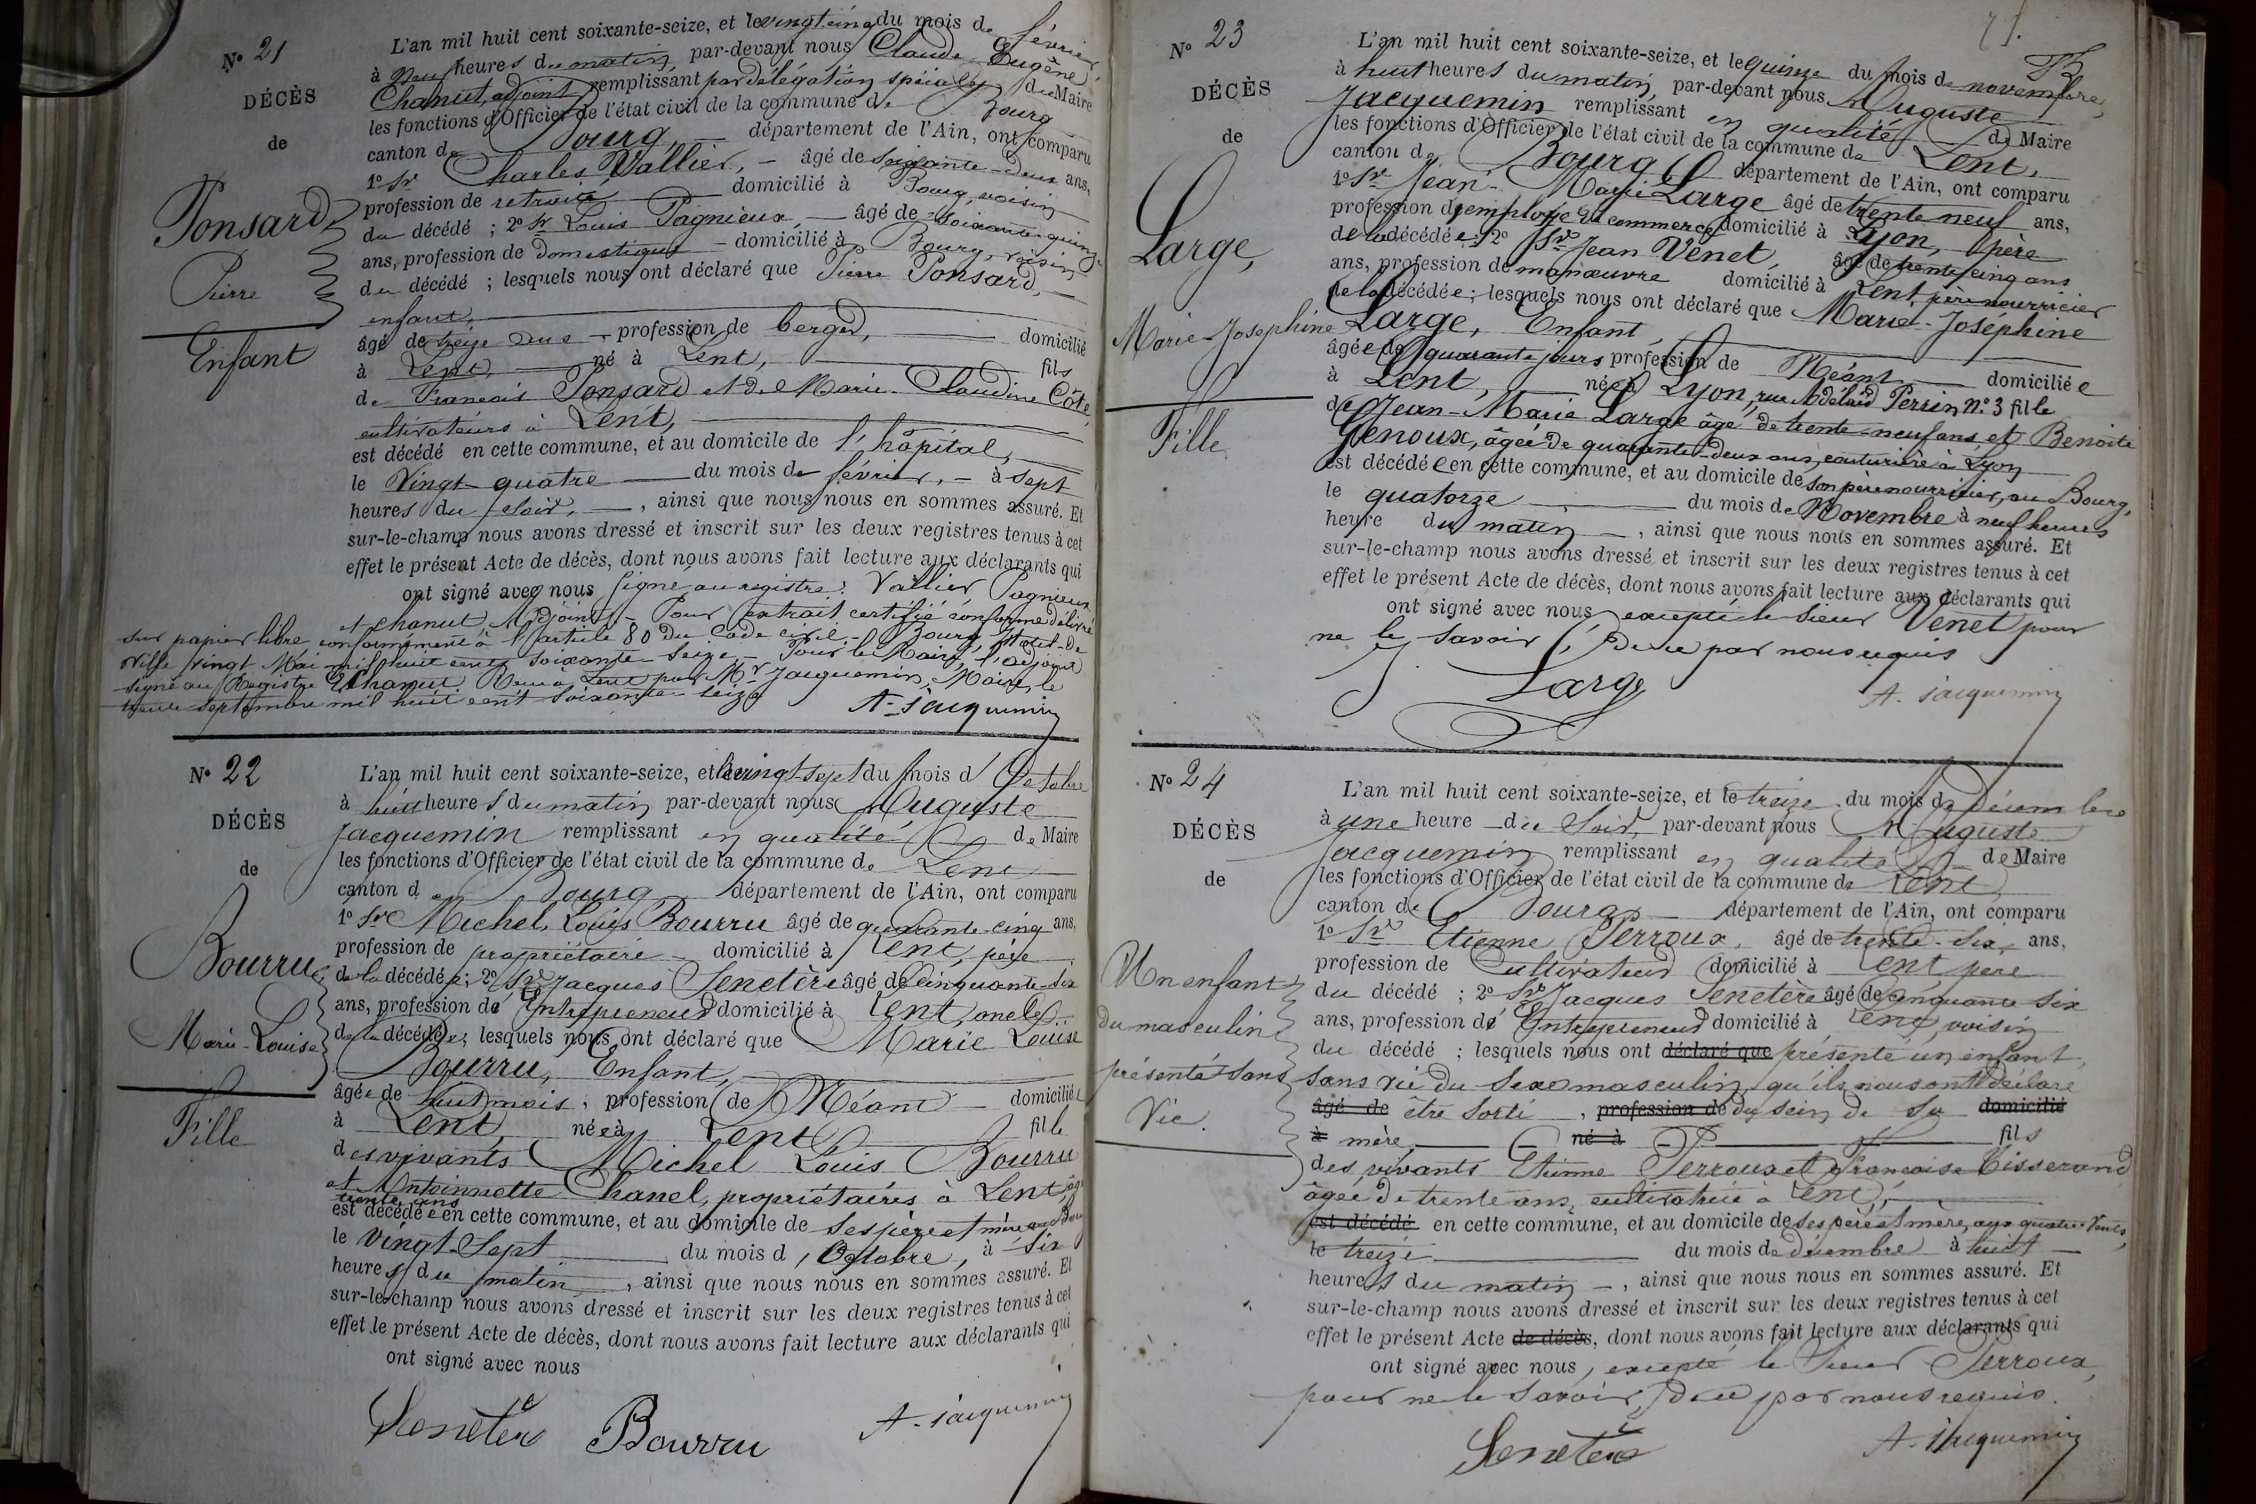 N° 21
DÉCÈS
de
Ponsard
Pierre
Enfant
L'an mil huit cent soixante-seize, et le vingt cinq du mois de février,
à neuf heures du matin, par-devant nous Claude Eugène
Chanut, adjoint remplissant par délégation spéciale du Maire
les fonctions d'Officier de l'état civil de la commune de Bourg
canton de Bourg département de l'Ain, ont comparu
1° Sr Charles Vallier, âgé de soixante-deux ans,
profession de retraité domicilié à Bourg, voisin
du décédé ; 2° Sr Louis Pagnieux, âgé de soixante-quinze
ans, profession de domestique domicilié à Bourg, voisin
du décédé ; lesquels nous ont déclaré que Pierre Ponsard,
enfant,
âgé de treize ans, profession de berger, domicilié
à Lent, né à Lent, fils
de François Ponsard et de Marie-Claudine Côte,
cultivateurs à Lent,
est décédé en cette commune, et au domicile de l'hôpital,
le Vingt-quatre du mois de février, à sept
heures du soir, , ainsi que nous nous en sommes assuré. Et
sur-le-champ nous avons dressé et inscrit sur les deux registres tenus à cet
effet le présent Acte de décès, dont nous avons fait lecture aux déclarants qui
ont signé avec nous Signé au registre : Vallier, Pagnieux
et Chanut, Adjoint. Pour extrait certifié conforme délivré
sur papier libre conformément à l'article 80 du Code civil. Bourg, Hôtel-de-
Ville, vingt Mai mil huit cent soixante-seize. Pour le Maire, l'adjoint
signé au Registre Chanut Remis à Lent par Mr Jacquemin, Maire, le
trente Septembre mil huit cent soixante seize
A. Jacquemin
N° 22
DÉCÈS
de
Bourru
Marie-Louise
Fille
L'an mil huit cent soixante-seize, et le vingt-sept du mois d'Octobre
à huit heures du matin, par-devant nous Auguste
Jacquemin remplissant en qualité de Maire
les fonctions d'Officier de l'état civil de la commune de Lent
canton de Bourg département de l'Ain, ont comparu
1° Sr Michel, Louis Bourru âgé de quarante-cinq ans,
profession de propriétaire domicilié à Lent, père
de la décédée ; 2° Sr Jacques Senetère âgé de cinquante-six
ans, profession d'Entrepreneur domicilié à Lent, oncle
de la décédée ; lesquels nous ont déclaré que Marie Louise
Bourru, Enfant,
âgée de huit mois, profession de Néant domiciliée
à Lent, née à Lent fille
des vivants Michel Louis Bourru
et Antoinette Chanel, propriétaires à Lent,
trente ans
est décédée en cette commune, et au domicile de ses père et mère
le vingt-Sept du mois d'Octobre, à six
heures du matin, ainsi que nous nous en sommes assuré. Et
sur-le-champ nous avons dressé et inscrit sur les deux registres tenus à cet
effet le présent Acte de décès, dont nous avons fait lecture aux déclarants qui
ont signé avec nous
Senetère Bourru A. Jacquemin
N° 23
DÉCÈS
de
Large,
Marie-Joséphine
Fille
L'an mil huit cent soixante-seize, et le quinze du mois de novembre,
à huit heures du matin, par-devant nous Auguste
Jacquemin remplissant en qualité de Maire
les fonctions d'Officier de l'état civil de la commune de Lent,
canton de Bourg département de l'Ain, ont comparu
1° Sr Jean-Marie Large âgé de trente-neuf ans,
profession d'employé de commerce domicilié à Lyon, père
de la décédée ; 2° Sr Jean Venet, âgé de trente cinq ans
ans, profession de manœuvre domicilié à Lent, père nourricier
de la décédée ; lesquels nous ont déclaré que Marie-Joséphine
Large, Enfant,
âgée de quarante jours profession de Néant domiciliée
à Lent, née à Lyon, rue Adélaïd Perrin N°. 3 fille
de Jean-Marie Large âgé de trente-neuf ans et Benoite
Genoux, âgée de quarante-deux ans, couturière à Lyon
est décédée en cette commune, et au domicile de son père nourricier, au Bourg,
le quatorze du mois de Novembre à neuf heures
heure du matin, ainsi que nous nous en sommes assuré. Et
sur-le-champ nous avons dressé et inscrit sur les deux registres tenus à cet
effet le présent Acte de décès, dont nous avons fait lecture aux déclarants qui
ont signé avec nous, excepté le sieur Venet pour
ne le savoir, de ce par nous requis
Large A. Jacquemin
N° 24
DÉCÈS
de
Un enfant
du masculin
présenté sans
Vie.
L'an mil huit cent soixante-seize, et le treize du mois de Décembre
à une heure du Soir, par-devant nous Auguste
Jacquemin remplissant en qualité de Maire
les fonctions d'Officier de l'état civil de la commune de Lent
canton de Bourg département de l'Ain, ont comparu
1° Sr Etienne Perroux, âgé de trente-six ans,
profession de Cultivateur domicilié à Lent père
du décédé ; 2° Sr Jacques Senetère âgé de cinquante six
ans, profession d'Entrepreneur domicilié à Lent, voisin
du décédé ; lesquels nous ont déclaré que présenté un enfant
sans vie du Sexe masculin qu'ils nous ont déclaré
âgé de être sorti, profession de du sein de sa domicilié
à mère né à fils
des vivants Etienne Perroux et Françoise Tisserand
âgée de trente ans, cultivatrice à Lent,
est décédé en cette commune, et au domicile de ses père et mère, aux quatre-Vents,
le treize du mois de décembre à huit
heures du matin, ainsi que nous nous en sommes assuré. Et
sur-le-champ nous avons dressé et inscrit sur les deux registres tenus à cet
effet le présent Acte de décès, dont nous avons fait lecture aux déclarants qui
ont signé avec nous, excepté le Sieur Perroux,
pour ne le savoir, de ce par nous requis.
Senetère A. Jacquemin